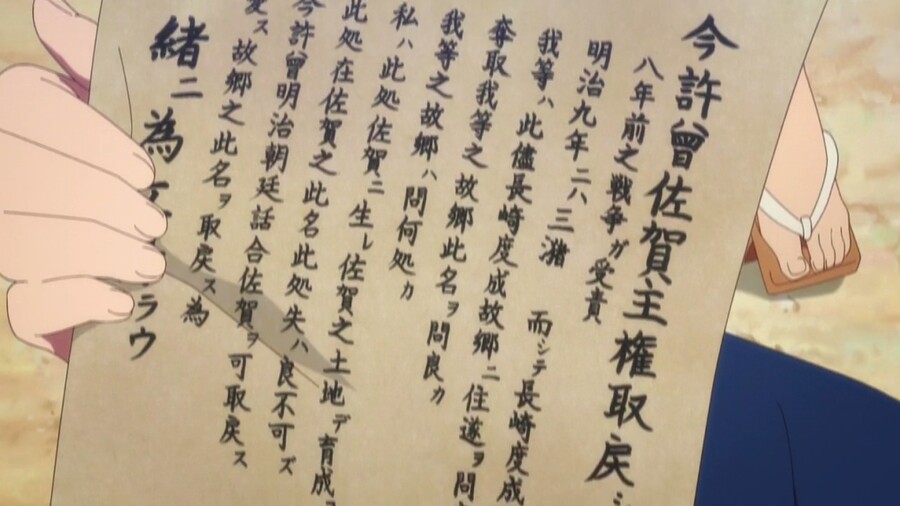 今許曾佐賀主権取戻シ
八年前之戦争ガ受責
明治九年二ハ三潴 而シテ長崎度成
我等ハ此儘長崎度成故郷ニ住遂ヲ問
奪取我等之故郷此名ヲ問良カ
我等之故郷ハ問何処カ
私ハ此処佐賀ニ生レ佐賀之土地デ育成
此処在佐賀之此名此処失ハ良不可ズ
今許曾明治朝廷話合佐賀ヲ可取戻ス
愛ス故郷之此名ヲ取戻ス為
緒ニ為 ラウ